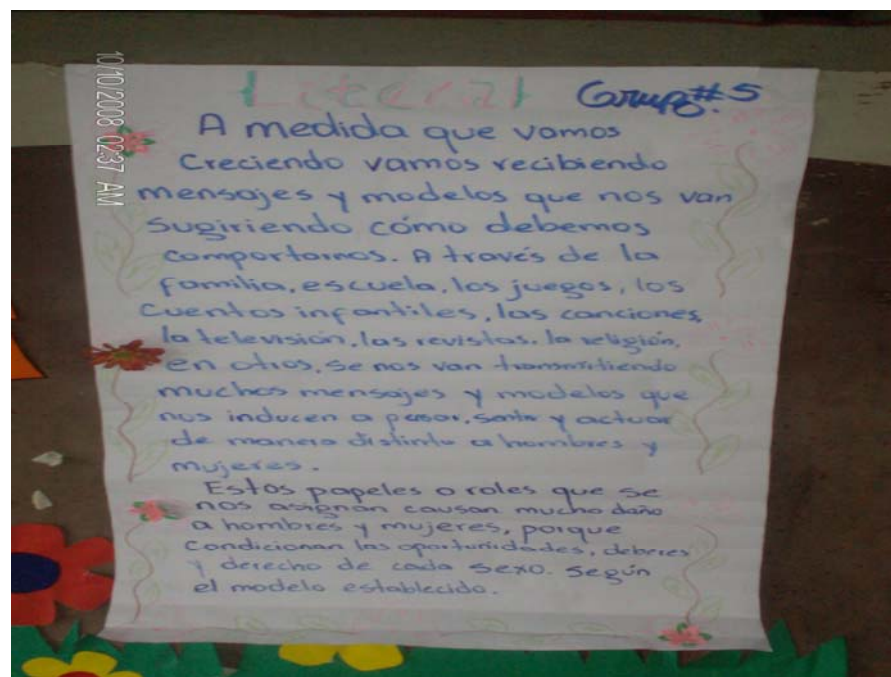 10/10/2008 02:37 AM
Literal
Grupo #.5
A medida que vamos
Creciendo vamos recibiendo
mensajes y modelos que nos van
sugiriendo cómo debemos
comportarnos. A través de la
familia, escuela, los juegos, los
cuentos infantiles, las canciones,
la televisión, las revistas, la religión,
en otros, se nos van transmitiendo
muchos mensajes y modelos que
nos inducen a pensar, sentir y actuar
de manera distinta a hombres y
mujeres.
Estos papeles o roles que se
nos asignan causan mucho daño
a hombres y mujeres, porque
condicionan las oportunidades, deberes
y derecho de cada sexo. según
el modelo establecido.